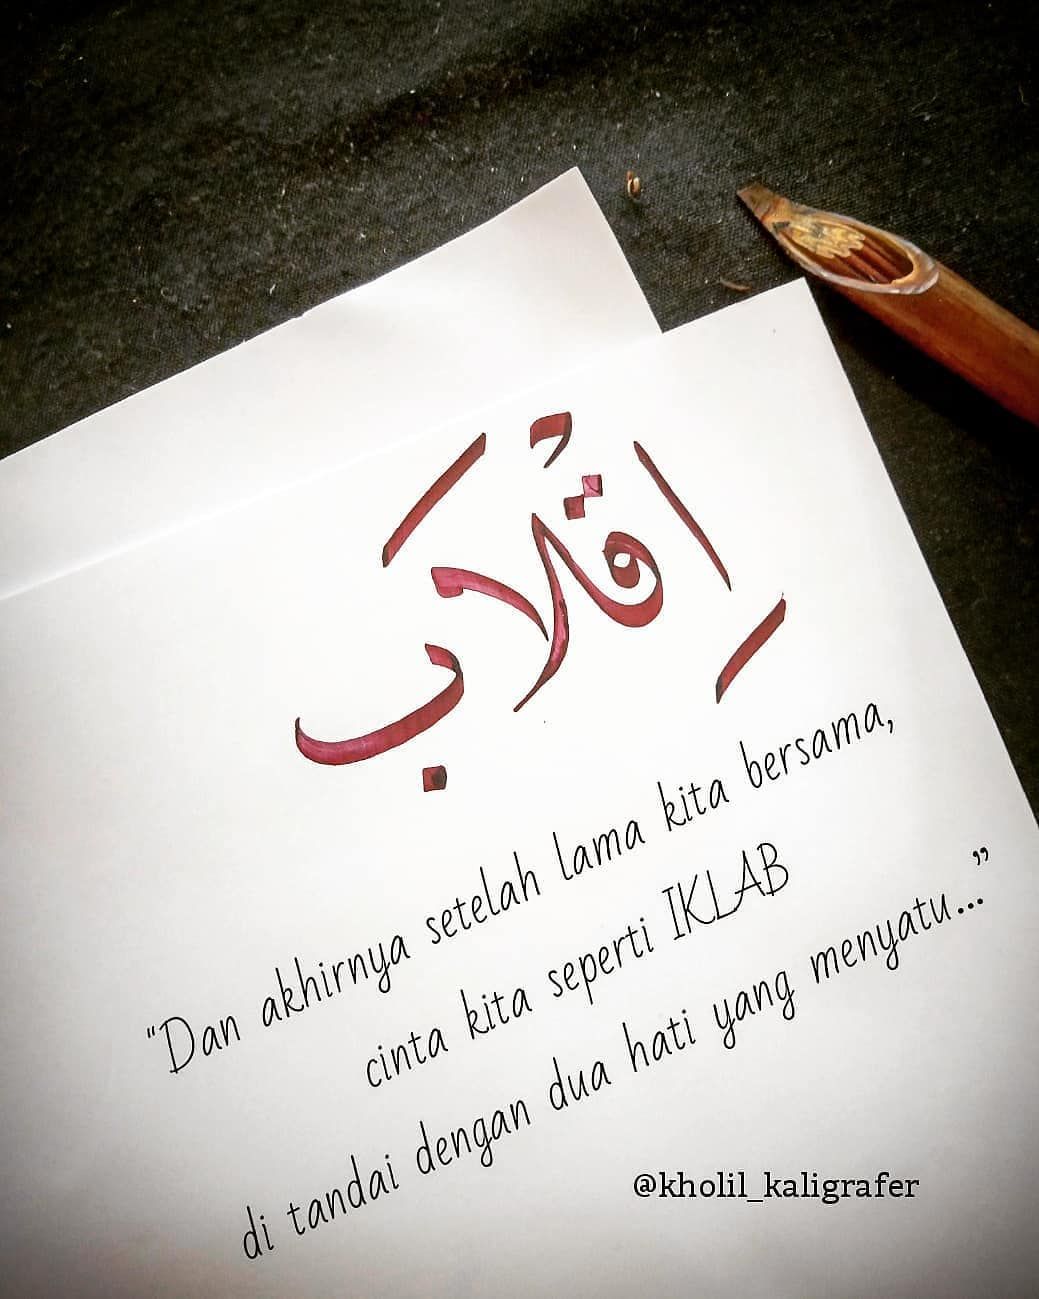 اِقْلَاب
"Dan akhirnya setelah lama kita bersama,
cinta kita seperti IKLAB
di tandai dengan dua hati yang menyatu..."
@kholil_kaligrafer